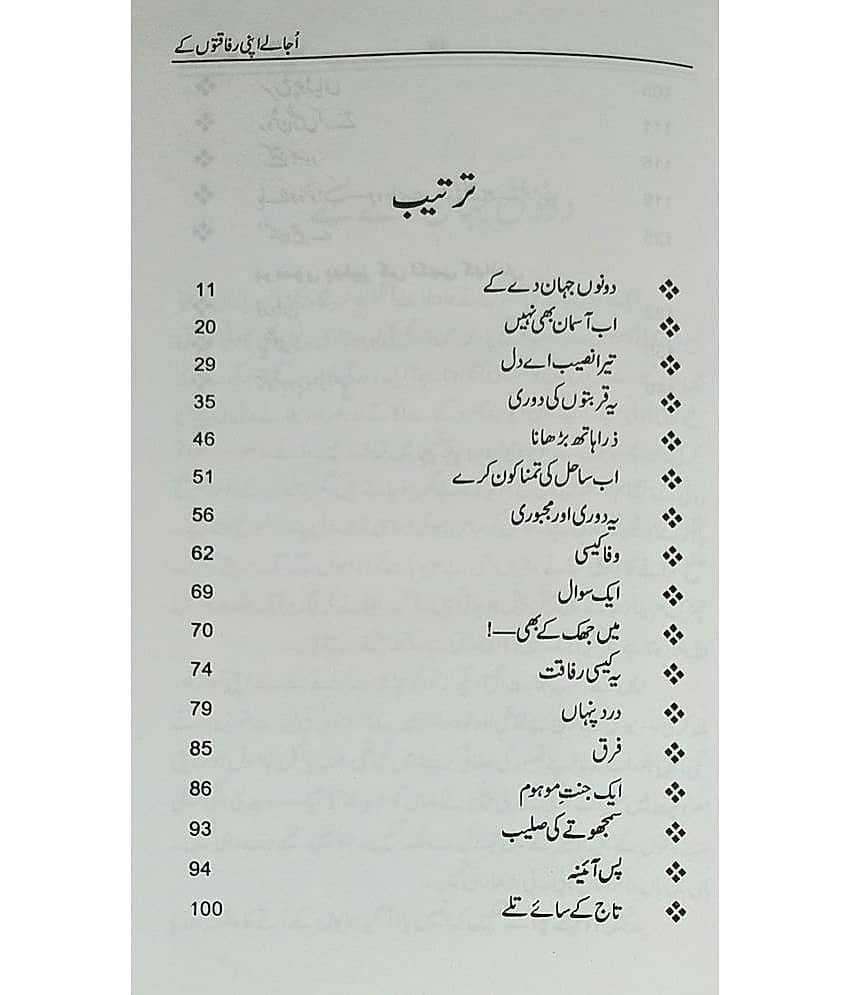 اُجالے اپنی رفاقتوں کے
ترتیب
دونوں جہان دے کے 11
اب آسمان بھی نہیں 20
تیرا نصیب اے دل 29
یہ قربتوں کی دوری 35
ذرا ہاتھ بڑھانا 46
اب ساحل کی تمنا کون کرے 51
یہ دوری اور مجبوری 56
وفا کیسی 62
ایک سوال 69
میں جھک کے بھی—! 70
یہ کیسی رفاقت 74
درد پنہاں 79
فرق 85
ایک جنتِ موہوم 86
سمجھوتے کی صلیب 93
پس آئینہ 94
تاج کے سائے تلے 100